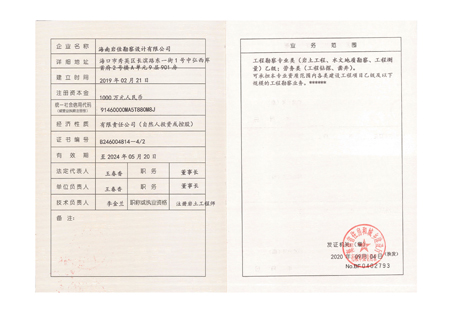 企业名称 海南岩佳勘察设计有限公司
详细地址 海口市秀英区长滨路东一街1号中弘西岸
首府2号楼A单元9层901房
建立时间 2019年02月21日
注册资本金 1000万元人民币
统一社会信用代码
91460000MA5T880M8J
经济性质 有限责任公司(自然人投资或控股)
证书编号 B246004814-4/2
有效期 至2024年05月20日
法定代表人 王春香 职务 董事长
单位负责人 王春香 职务 董事长
技术负责人 李金兰 职称或执业资格 注册岩土工程师
备注:
业务范围
工程勘察专业类(岩土工程、水文地质勘察、工程测
量)乙级;劳务类(工程钻探、凿井)。
可承担本专业资质范围内各类建设工程项目乙级及以下
规模的工程勘察业务。******
发证机关:(章)
2020年09月04日(换发)
No.BF 0402793